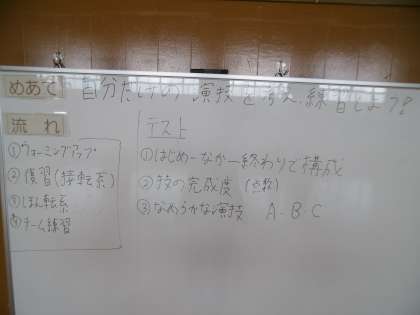 めあて 自分たちの演技を考え、練習しよう!
流れ
①ウォーミングアップ
②復習(接転系)
③ほん転系
④チーム練習
テスト
①はじめ-なか-終わりで構成
②技の完成度(点数)
③なめらかな演技 A・B・C